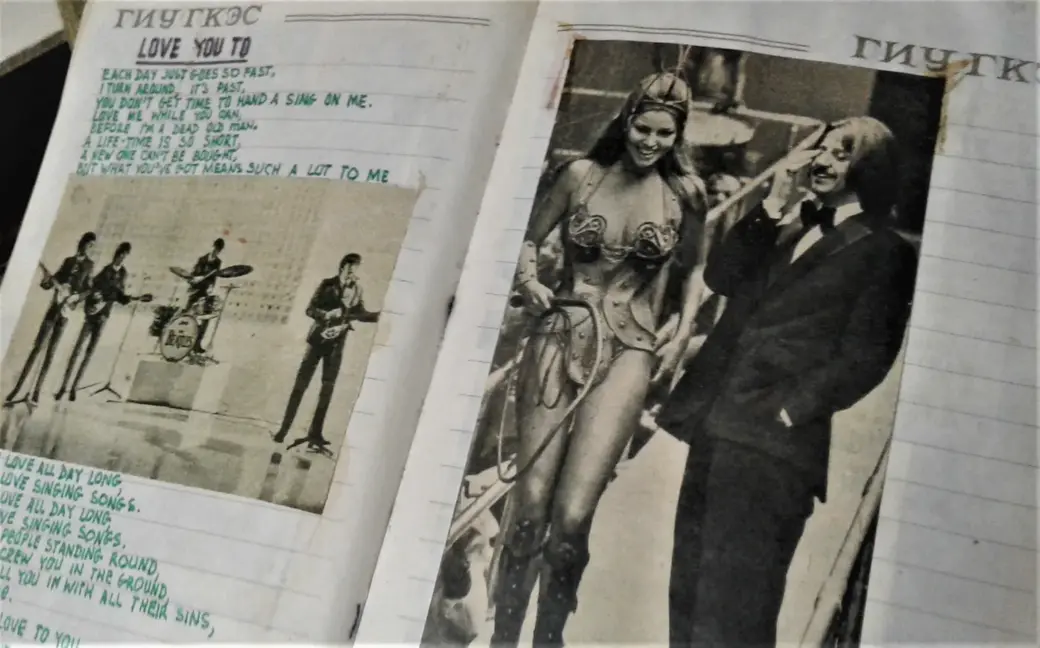 ГИУ ГКЭС
LOVE YOU TO
EACH DAY JUST GOES SO FAST,
I TURN AROUND, IT'S PAST,
YOU DON'T GET TIME TO HAND A SING ON ME.
LOVE ME WHILE YOU CAN,
BEFORE I'M A DEAD OLD MAN.
A LIFE-TIME IS SO SHORT,
A NEW ONE CAN'T BE BOUGHT,
BUT WHAT YOU'VE GOT MEANS SUCH A LOT TO ME
BEATLES
LOVE ALL DAY LONG
LOVE SINGING SONGS.
OVE ALL DAY LONG
VE SINGING SONGS.
PEOPLE STANDING ROUND,
CREW YOU IN THE GROUND,
LL YOU IN WITH ALL THEIR SINS,
E.
LOVE TO YOU
ГИУ ГК